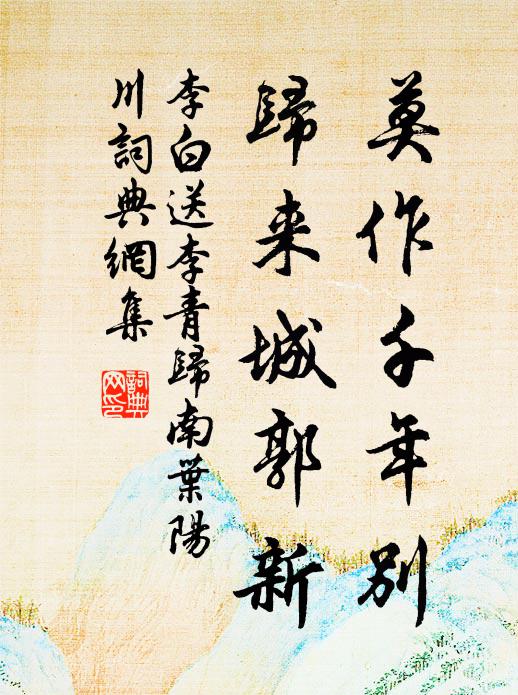 莫作千年別
歸来城郭新
李白送李青歸南葉陽
川詞典網集
詞典
网印